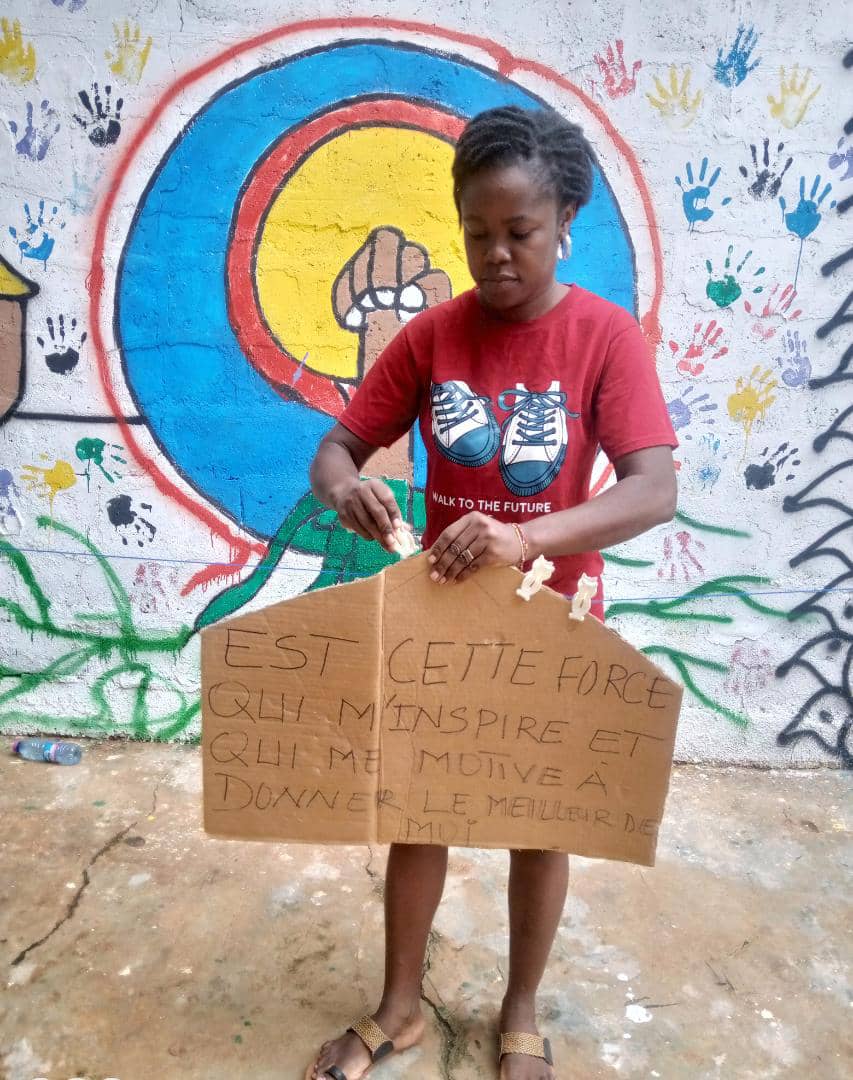 WALK TO THE FUTURE
EST CETTE FORCE
QUI M'INSPIRE ET
QUI ME MOTIVE À
DONNER LE MEILLEUR DE
MOI